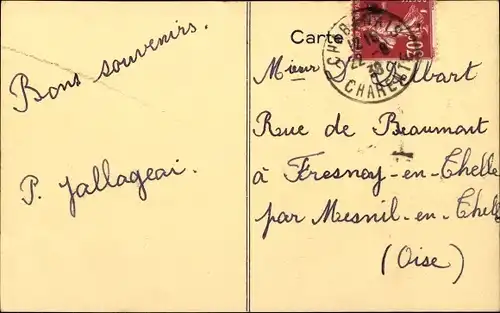 Bons souvenirs.
P. Jallageai.
Carte
CHABANAIS
CHARENTE
30
Mieur
Rue de Beaumont
à Fresnoy-en-Thelle
par Mesnil-en-Thelle
(Oise)